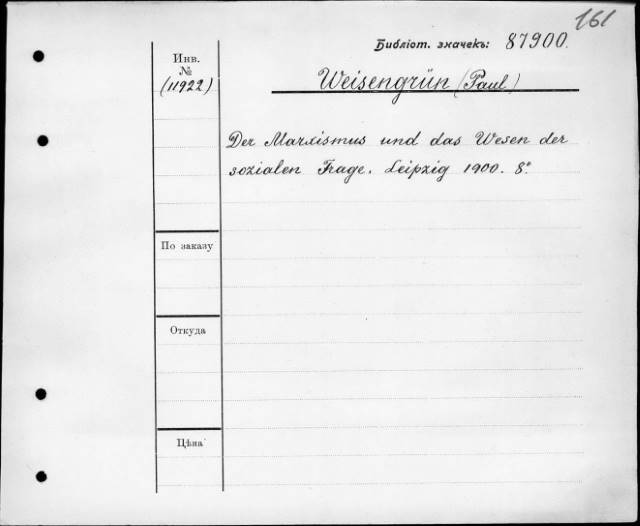 161
Библіот. значекъ: 87900.
Инв.
№
(11922)
Weisengrün (Paul)
Der Marxismus und das Wesen der
sozialen Frage. Leipzig 1900. 8°.
По заказу
Откуда
Цѣна